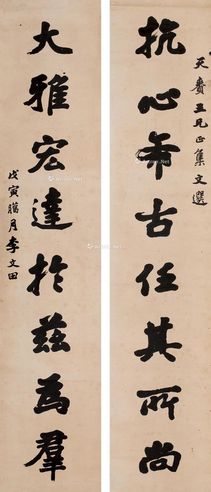 天賚五兄正集文選
抗心希古任其所尚
大雅宏達於茲為羣
戊寅臘月李文田